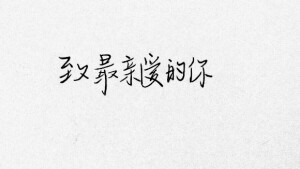 致最亲爱的你